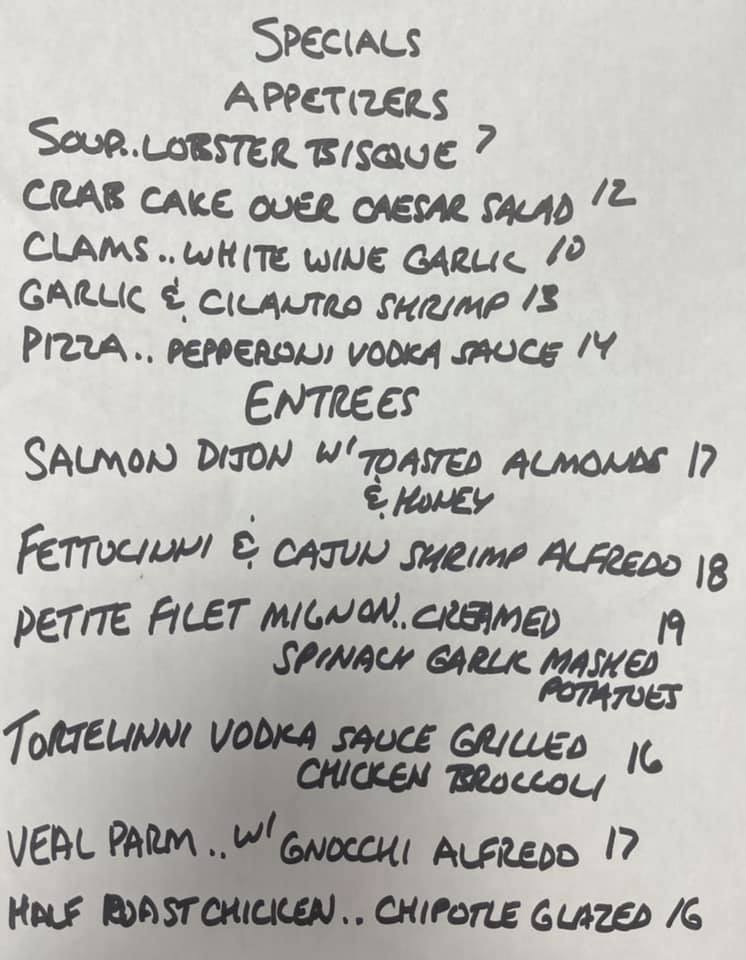 SPECIALS
APPETIZERS
SOUP..LOBSTER BISQUE 7
CRAB CAKE OVER CAESAR SALAD 12
CLAMS..WHITE WINE GARLIC 10
GARLIC & CILANTRO SHRIMP 13
PIZZA.. PEPPERONI VODKA SAUCE 14
ENTREES
SALMON DIJON W/ TOASTED ALMONDS 17
& HONEY
FETTUCINNI & CAJUN SHRIMP ALFREDO 18
PETITE FILET MIGNON..CREAMED 19
SPINACH GARLIC MASHED
POTATOES
TORTELINNI VODKA SAUCE GRILLED 16
CHICKEN BROCCOLI
VEAL PARM..W/ GNOCCHI ALFREDO 17
HALF ROAST CHICKEN.. CHIPOTLE GLAZED 16